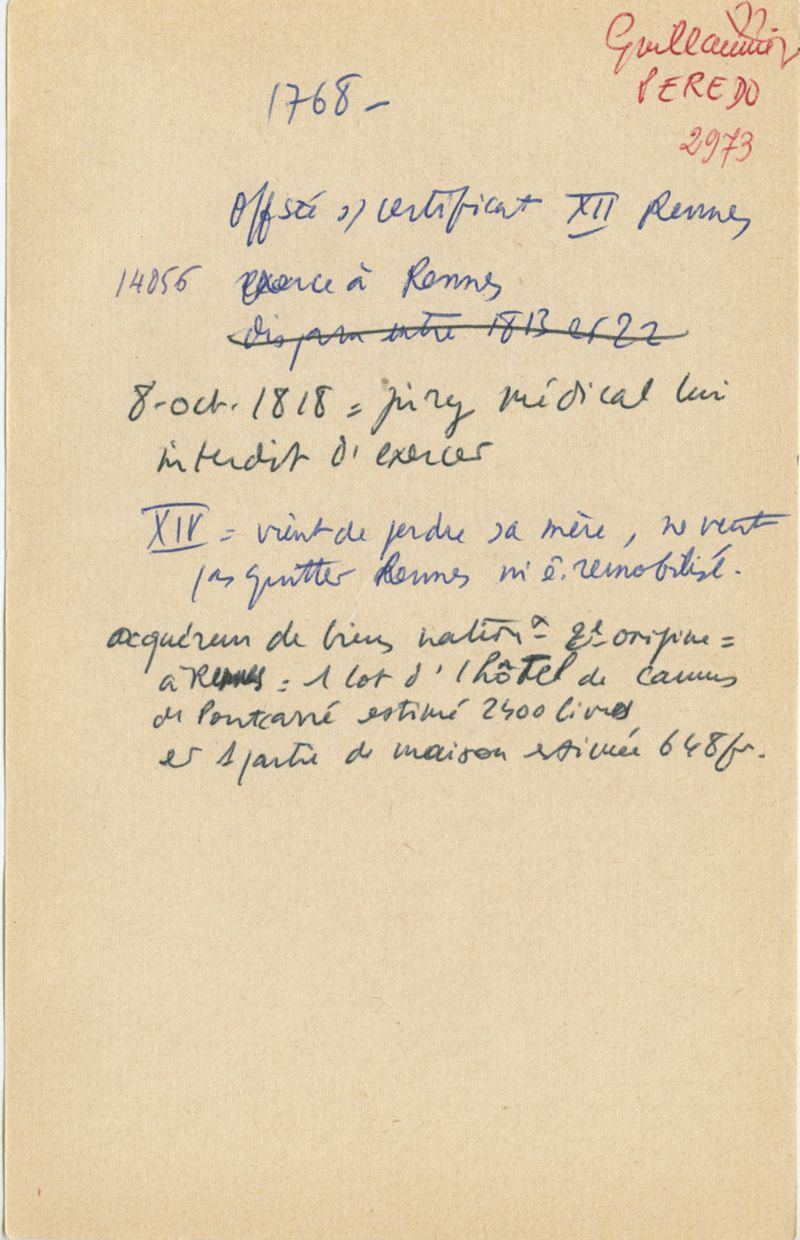 PEREDO
2973
1768 -
Off sté s/ certificat XII Rennes
14056 exerce à Rennes
disparu entre 1813 et 22
8-oct. 1818 = jury médical lui
interdit d'exercer
XIV = vient de perdre sa mère, ne veut
pas quitter Rennes ni ê. remobilisé.
acquéreur de biens nation^x 2e origine =
à Rennes = 1 lot d'l'hôtel de Camus
de Pontcarré estimé 2400 livres
et 1 partie de maison estimée 648 fr.